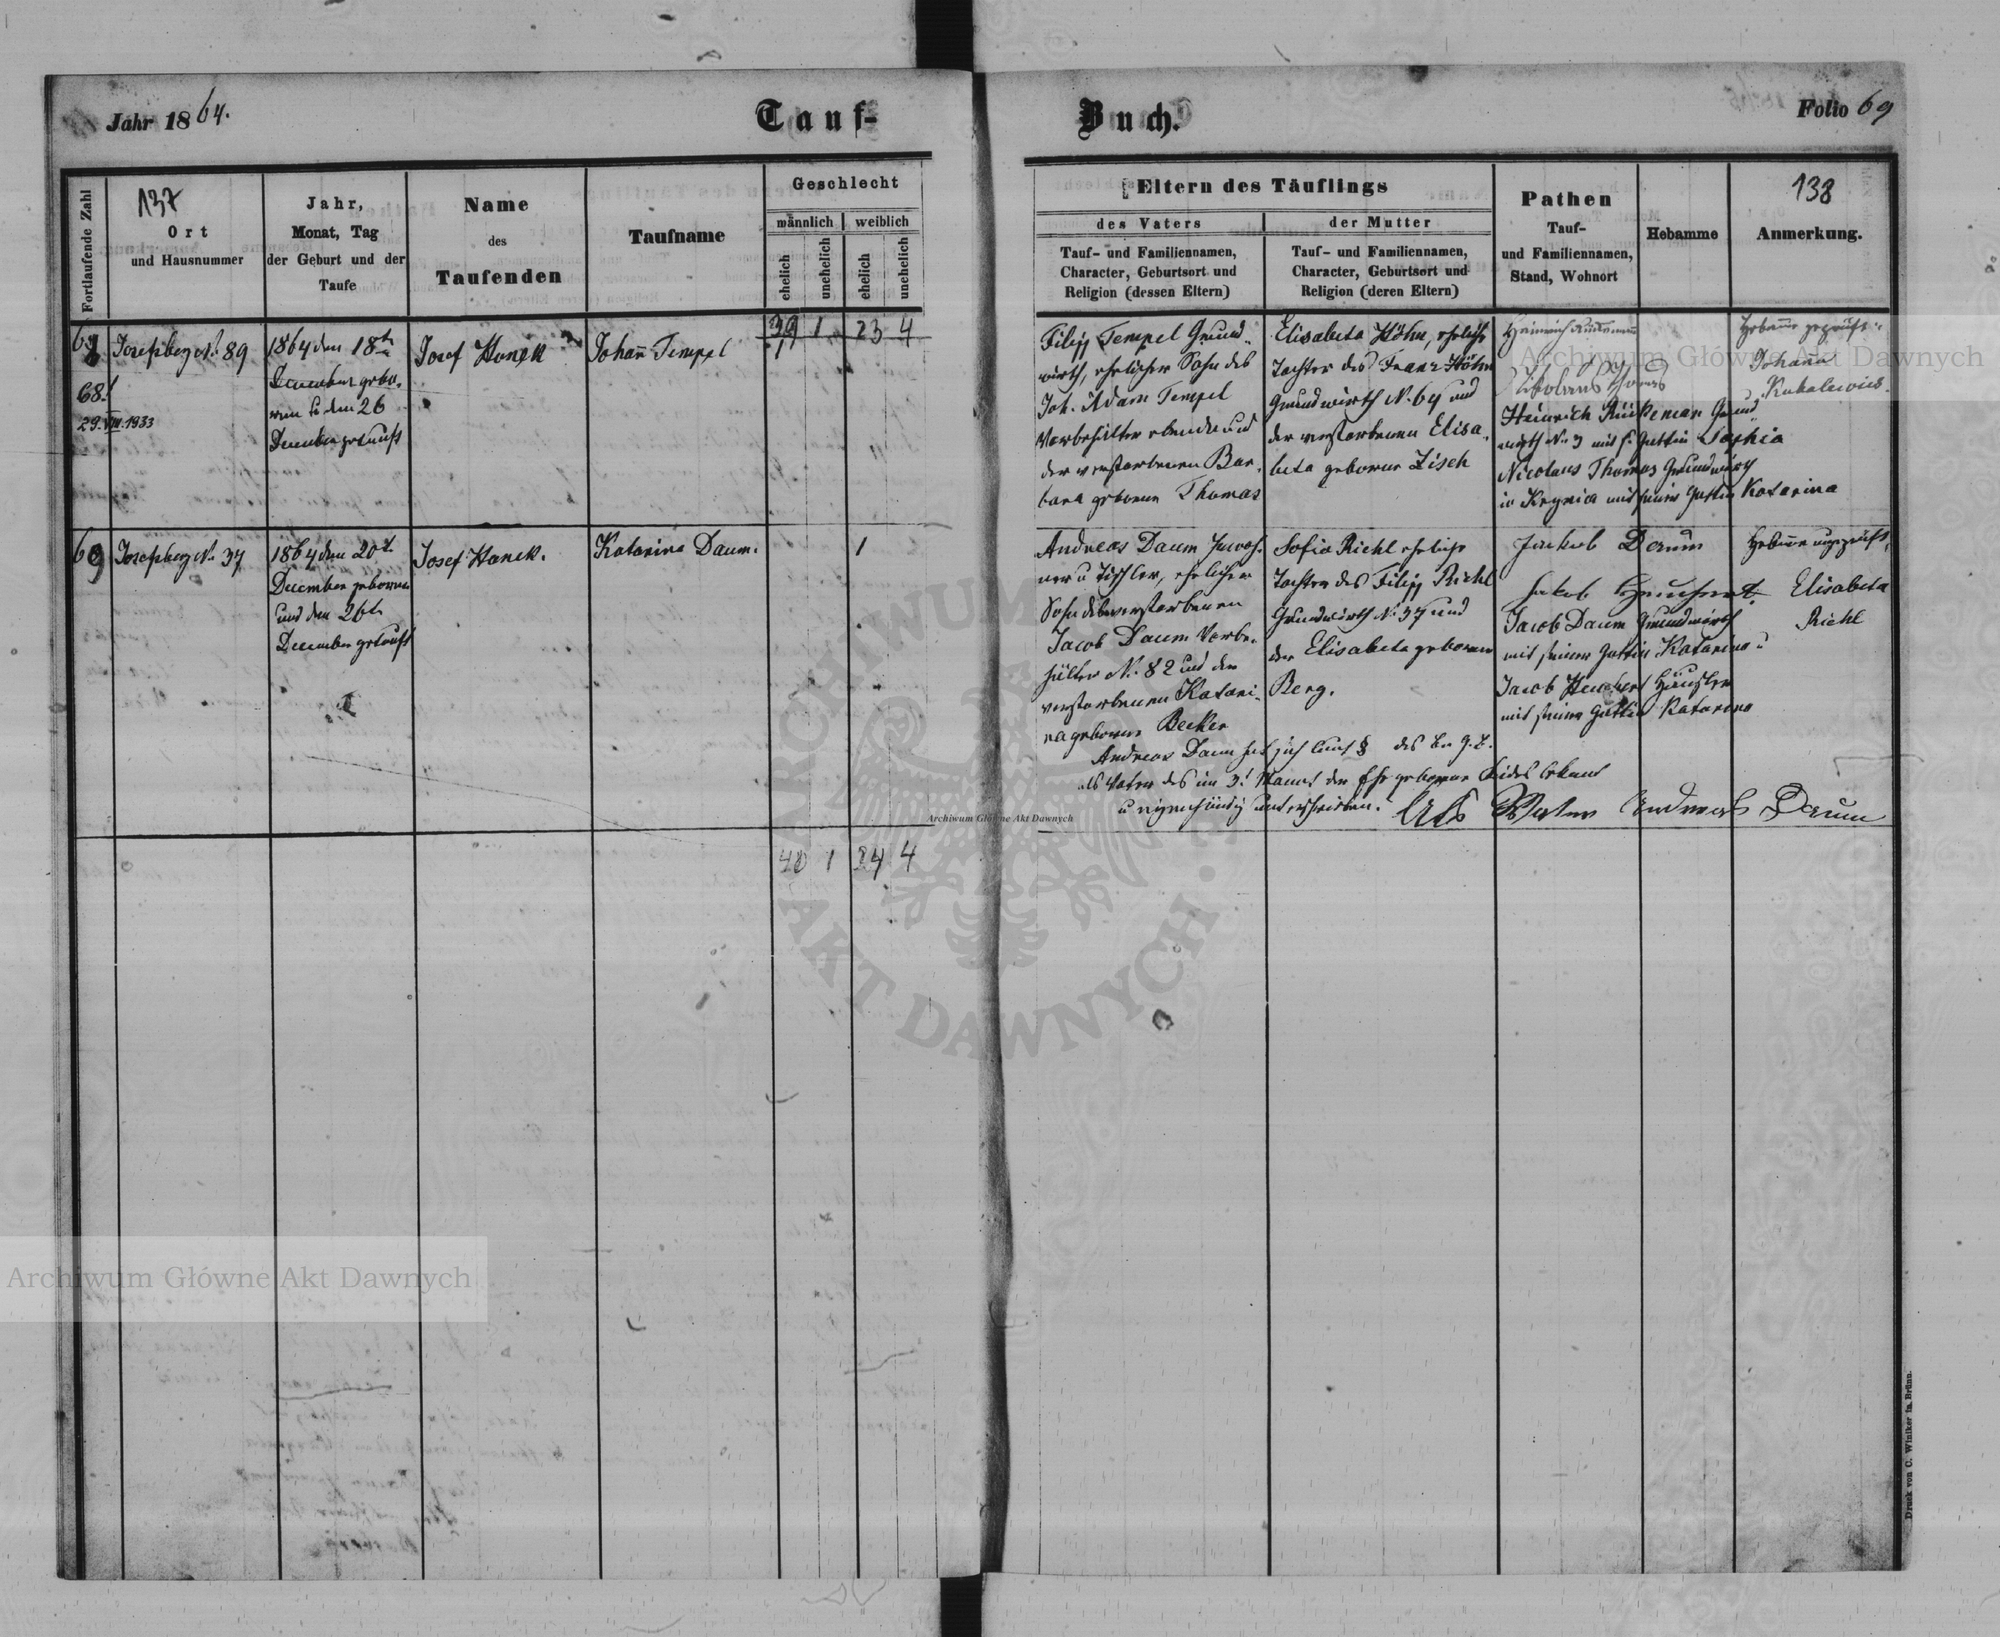 Jahr 1864.
Tauf-
Buch.
Folio 69
Fortlaufende Zahl
137
Ort
und Hausnummer
Jahr,
Monat, Tag
der Geburt und der
Taufe
Name
des
Taufenden
Taufname
Geschlecht
männlich
weiblich
ehelich
unehelich
ehelich
unehelich
Eltern des Täuflings
des Vaters
der Mutter
Tauf- und Familiennamen,
Character, Geburtsort und
Religion (dessen Eltern)
Tauf- und Familiennamen,
Character, Geburtsort und
Religion (deren Eltern)
Pathen
Tauf-
und Familiennamen,
Stand, Wohnort
Hebamme
138
Anmerkung.
68!
29.VIII.1933
Josefsberg N. 89
1864 den 18t
December gebo-
ren u den 26
December getauft
Josef Hanek
Johañ Tempel
39 1 23 4
1
Filipp Tempel Grund-
wirth, ehelicher Sohn des
Joh. Adam Tempel
Vorbehälter ebenda und
der verstorbenen Bar-
bara geborene Thomas
Elisabeta Höhn, eheliche
Tochter des Franz Höhn
Grundwirth N. 64 und
der verstorbenen Elisa-
beta geborene Zisch
Nikolaus Thomas
Heinrich Rückeman Grund-
wirth N. 3 mit s. Gattin Sophia
Nicolaus Thomas Grundwirth
in Krynica mit seiner Gattin Katarina
Hebamme geprüft:
Johanna
69
Josefsberg N. 37
1864 den 20t
December geboren
und den 26t
December getauft
Josef Hanek.
Katarina Daum.
1
Andreas Daum
ner u Tischler, ehelicher
Sohn des verstorbenen
Jacob Daum Vorbe-
hälter N. 82 und der
verstorbenen Katari-
na geborene Becker
Sofia Richl eheliche
Tochter des Filipp Richl
Grundwirth N. 37 und
der Elisabeta geborenen
Berg.
Jackob Daum
Jakob
Jacob Daum Grundwirth
mit seiner Gattin Katarina u
Jacob Heuchert Häusler
mit seiner Gattin Katarina
Hebamme ungeprüft,
Elisabeta
Richl
Andreas Daum hat sich laut § des b. G. B.
als Vater des im 3t Monat der Ehe geborene Kindes bekant
u eigenhändig unterschrieben.
Als Vater Andreas Daum
40 1 24 4
Archiwum Główne Akt Dawnych
Archiwum Główne Akt Dawnych
Archiwum Główne Akt Dawnych
ARCHIWUM
AKT DAWNYCH
Druck von C. Winiker in Brünn.